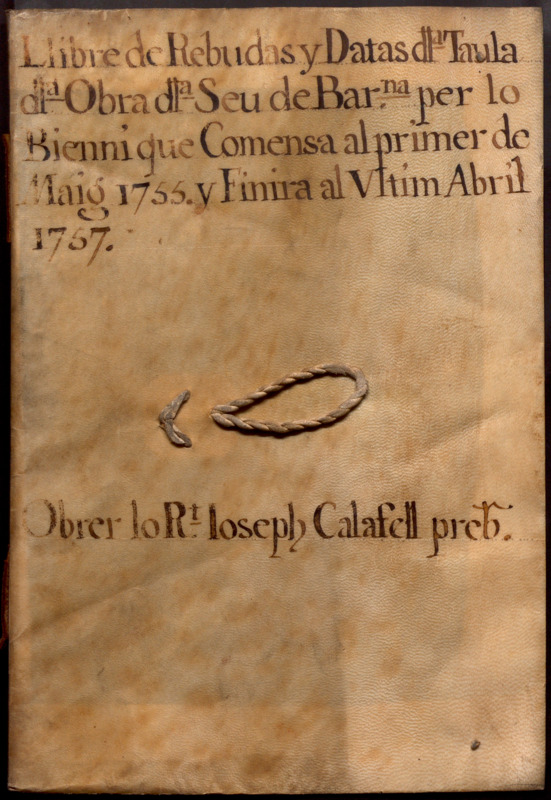 Llibre de Rebudas y Datas dla Taula
dla Obra dla Seu de Bar.na per lo
Bienni que Comensa al primer de
Maig 1755. y Finira al Vltim Abril
1757.
Obrer lo Rt. Ioseph Calafell preb.